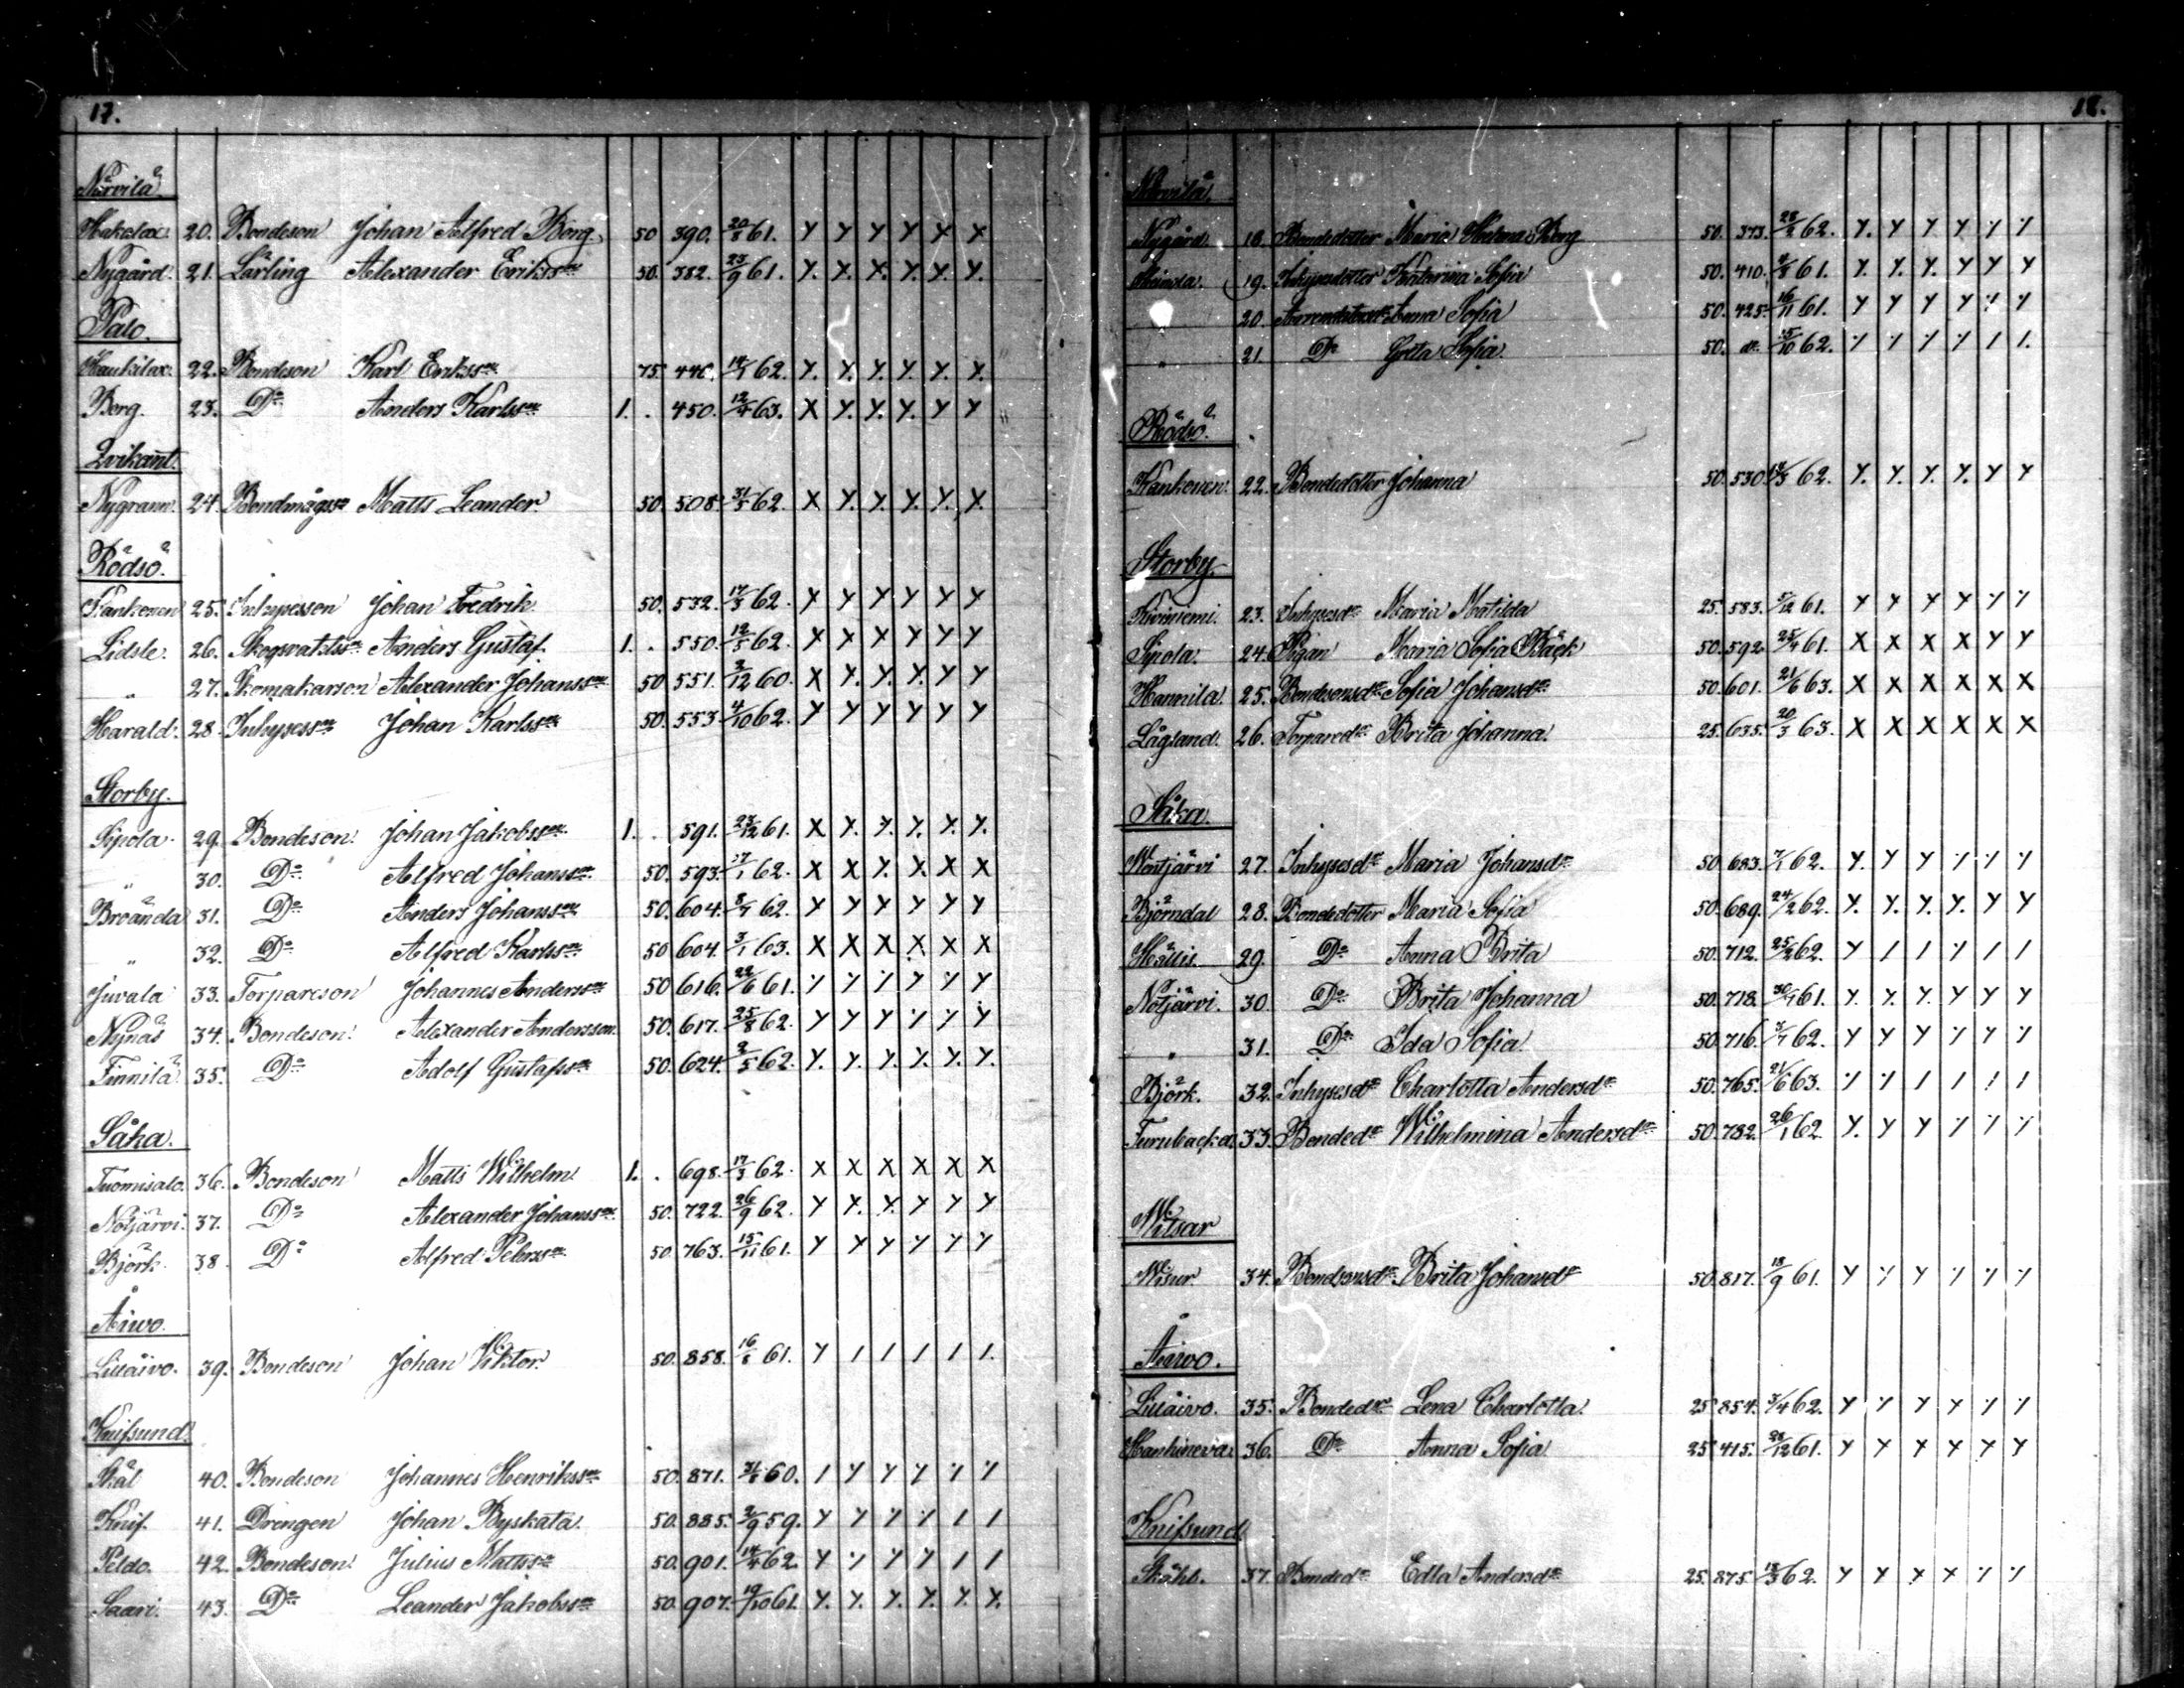 17.
Närvilä
Hakalax. 20. Bondeson Johan Alfred Borg 50 390. 20/8 61. Y Y Y Y X X
Nygård. 21. Lärling Alexander Erikss:n 50. 382. 23/9 61. Y. Y. X. Y. Y. Y.
Palo.
Kaukilax. 22. Bondeson Karl Erikss:n 75. 446. 14/1 62. Y. Y. Y. Y. Y. Y.
Berg. 23. D:o Anders Karlss:n 1. . 450. 12/4 63. X Y. Y. Y. Y Y
Qvikant.
Nygrann. 24. Bondmågss:n Matts Leander 50. 508. 31/5 62. X Y. Y. Y. Y. Y.
Rödsö.
Kankonen 25. Inhysesson Johan Fredrik 50. 532. 17/3 62. Y Y Y Y Y Y
Lidsle. 26. Skogsvaktss:n Anders Gustaf. 1. . 550. 12/5 62. Y X Y Y Y Y
" 27. Skomakarson Alexander Johanss:n 50 551. 2/12 60. X Y. Y. Y. Y Y
Harald. 28. Inhysess:n Johan Karlss:n 50. 553 4/10 62. Y Y Y Y Y Y
Storby.
Sipola. 29. Bondeson Johan Jakobss:n 1. . 591. 23/12 61. X Y. Y. Y. Y. Y.
" 30. D:o Alfred Johanss:n 50. 593. 17/1 62. X X Y. X. X X
Broända 31. D:o Anders Johanss:n 50. 604. 8/7 62. Y Y Y Y Y Y
" 32. D:o Alfred Karlss:n 50 604. 3/1 63. X X X X X X
Juvala 33. Torpareson Johannes Anderss:n 50 616. 22/6 61. Y Y Y Y Y Y
Nynäs 34. Bondeson Alexander Andersson. 50. 617. 25/8 62. Y Y Y Y Y Y
Finnilä 35. D:o Adolf Gustafss:n 50. 624. 2/5 62. Y. Y. Y. Y. Y. Y.
Såka.
Tuomisalo. 36. Bondeson Matts Wilhelm 1. . 698. 17/3 62. X X X X X X
Nötjärvi. 37. D:o Alexander Johanss:n 50. 722. 26/9 62. Y Y. Y. Y Y Y
Björk. 38. D:o Alfred Peterss:n 50. 763. 15/11 61. Y Y Y Y Y Y
Åiwo.
Lillåivo. 39. Bondeson Johan Viktor 50. 858. 16/8 61. Y / / / / /.
Knifsund.
Skål 40. Bondeson Johannes Henrikss:n 50. 871. 31/8 60. / Y Y Y Y Y
Knif. 41. Drengen Johan Byskata 50. 885. 2/9 59. Y Y Y Y / /
Peldo. 42. Bondeson Julius Mattss:n 50. 901. 14/4 62. Y Y Y Y / /
Saari. 43. D:o Leander Jakobss:n 50. 907. 19/10 61. Y. Y. Y. Y. Y. Y.
18.
Närvilä.
Nygård. 18. Bondedotter Maria Helena Borg 50. 373. 28/2 62. Y. Y Y Y Y Y
19. Inhysesdotter Katarina Sofia 50. 410. 61. Y. Y. Y. Y Y Y
20. Anna Sofia 50. 425. 16/11 61. Y Y Y Y Y Y
" 21. D:o Greta Sofia 50. d:o 15/10 62. Y Y Y Y / /.
Rödsö.
Kankonen. 22. Bondedotter Johanna 50. 530. 62. Y. Y. Y. Y. Y Y
Storby.
Kiviniemi. 23. Inhysesd:r Maria Matilda 25. 583. 5/12 61. Y Y Y Y Y Y
Sipola. 24. Pigan Maria Sofia Bäck 50. 592. 25/4 61. X X X X Y Y
Hannila. 25. Bondsonsd:r Sofia Johansd:r 50. 601. 21/6 63. X X X X X X
Lågland. 26. Torpared:r Brita Johanna. 25. 635. 20/3 63. X X X X X X
Såka.
Wontjärvi 27. Inhysesd:r Maria Johansd:r 50. 683. 7/1 62. Y. Y Y Y Y Y
Björndal 28. Bondedotter Maria Sofia 50. 689. 24/2 62. Y. Y. Y. Y. Y Y
Hällis. 29. D:o Anna Brita 50. 712. 25/2 62. Y / / Y / /
Nötjärvi. 30. D:o Brita Johanna 50. 718. 30/7 61. Y. Y. Y. Y Y Y
" 31. D:o Ida Sofia 50. 716. 3/7 62. Y Y Y Y Y Y
Björk. 32. Inhysesd:r Charlotta Andersd:r 50. 765. 21/6 63. Y Y / / / /
Furubacka. 33. Bonded:r Wilhelmina Andersd:r 50. 782. 26/1 62. Y. Y Y Y Y Y
Witsar
Wisur. 34. Bondsonsd:r Brita Johansd:r 50. 817. 18/9 61. Y Y Y Y Y Y
Åiwo.
Lillåivo. 35. Bonded:r Lena Charlotta. 25. 854. 3/4 62. Y Y Y Y Y Y
Hanhineva. 36. D:o Anna Sofia 25. 415. 28/12 61. Y Y Y Y Y Y
Knifsund
Ståhl. 37. Bonded:r Edla Andersd:r 25. 875. 13/3 62. Y Y Y Y Y Y